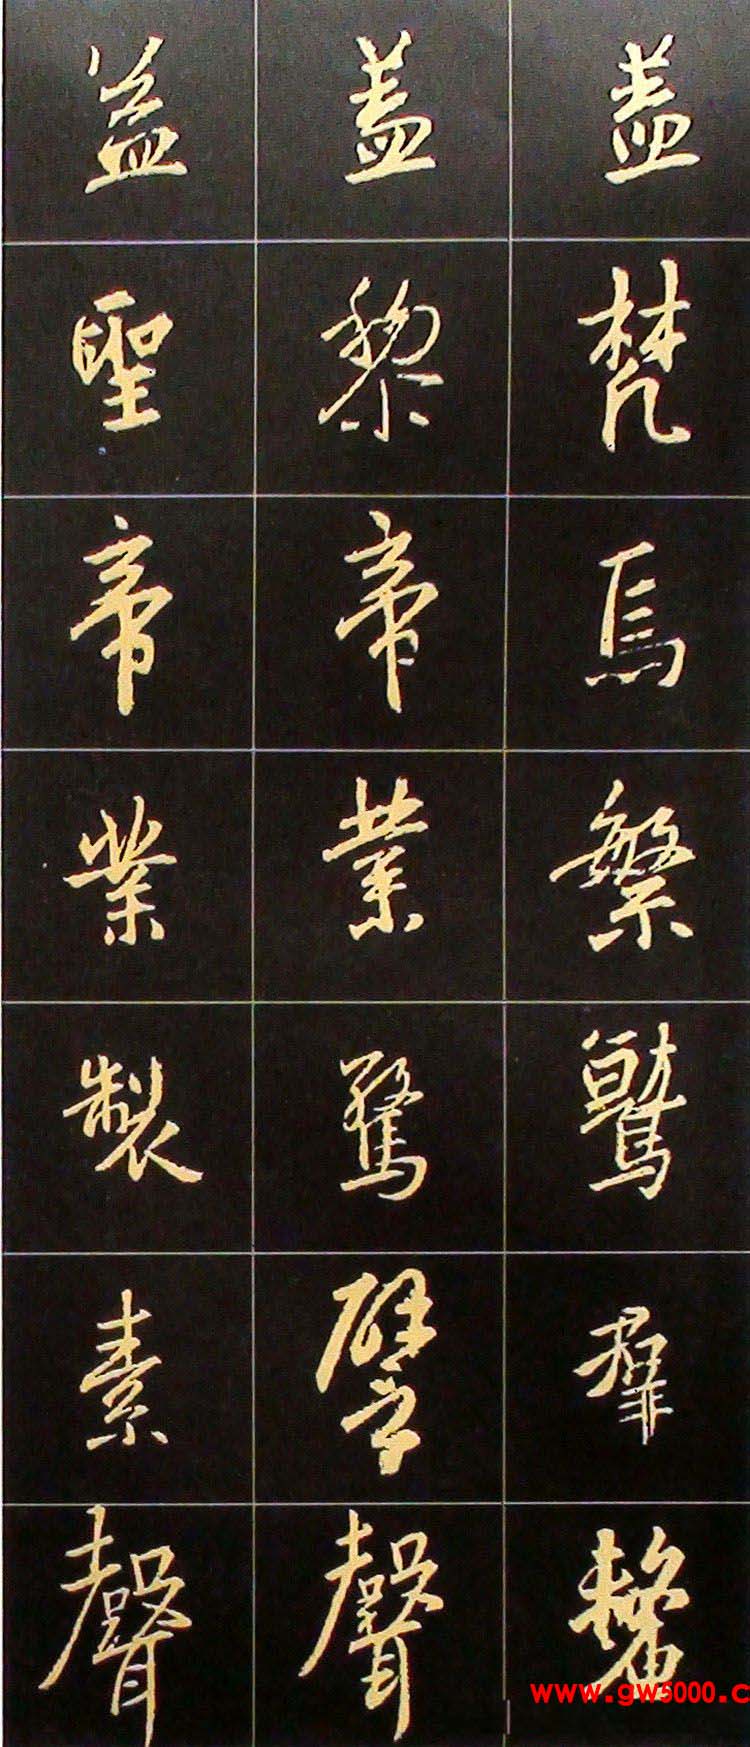 盖梵焉繁鷲群馨
盖黎帝業驚譬聲
益聖帝業製素聲
www.gw5000.c